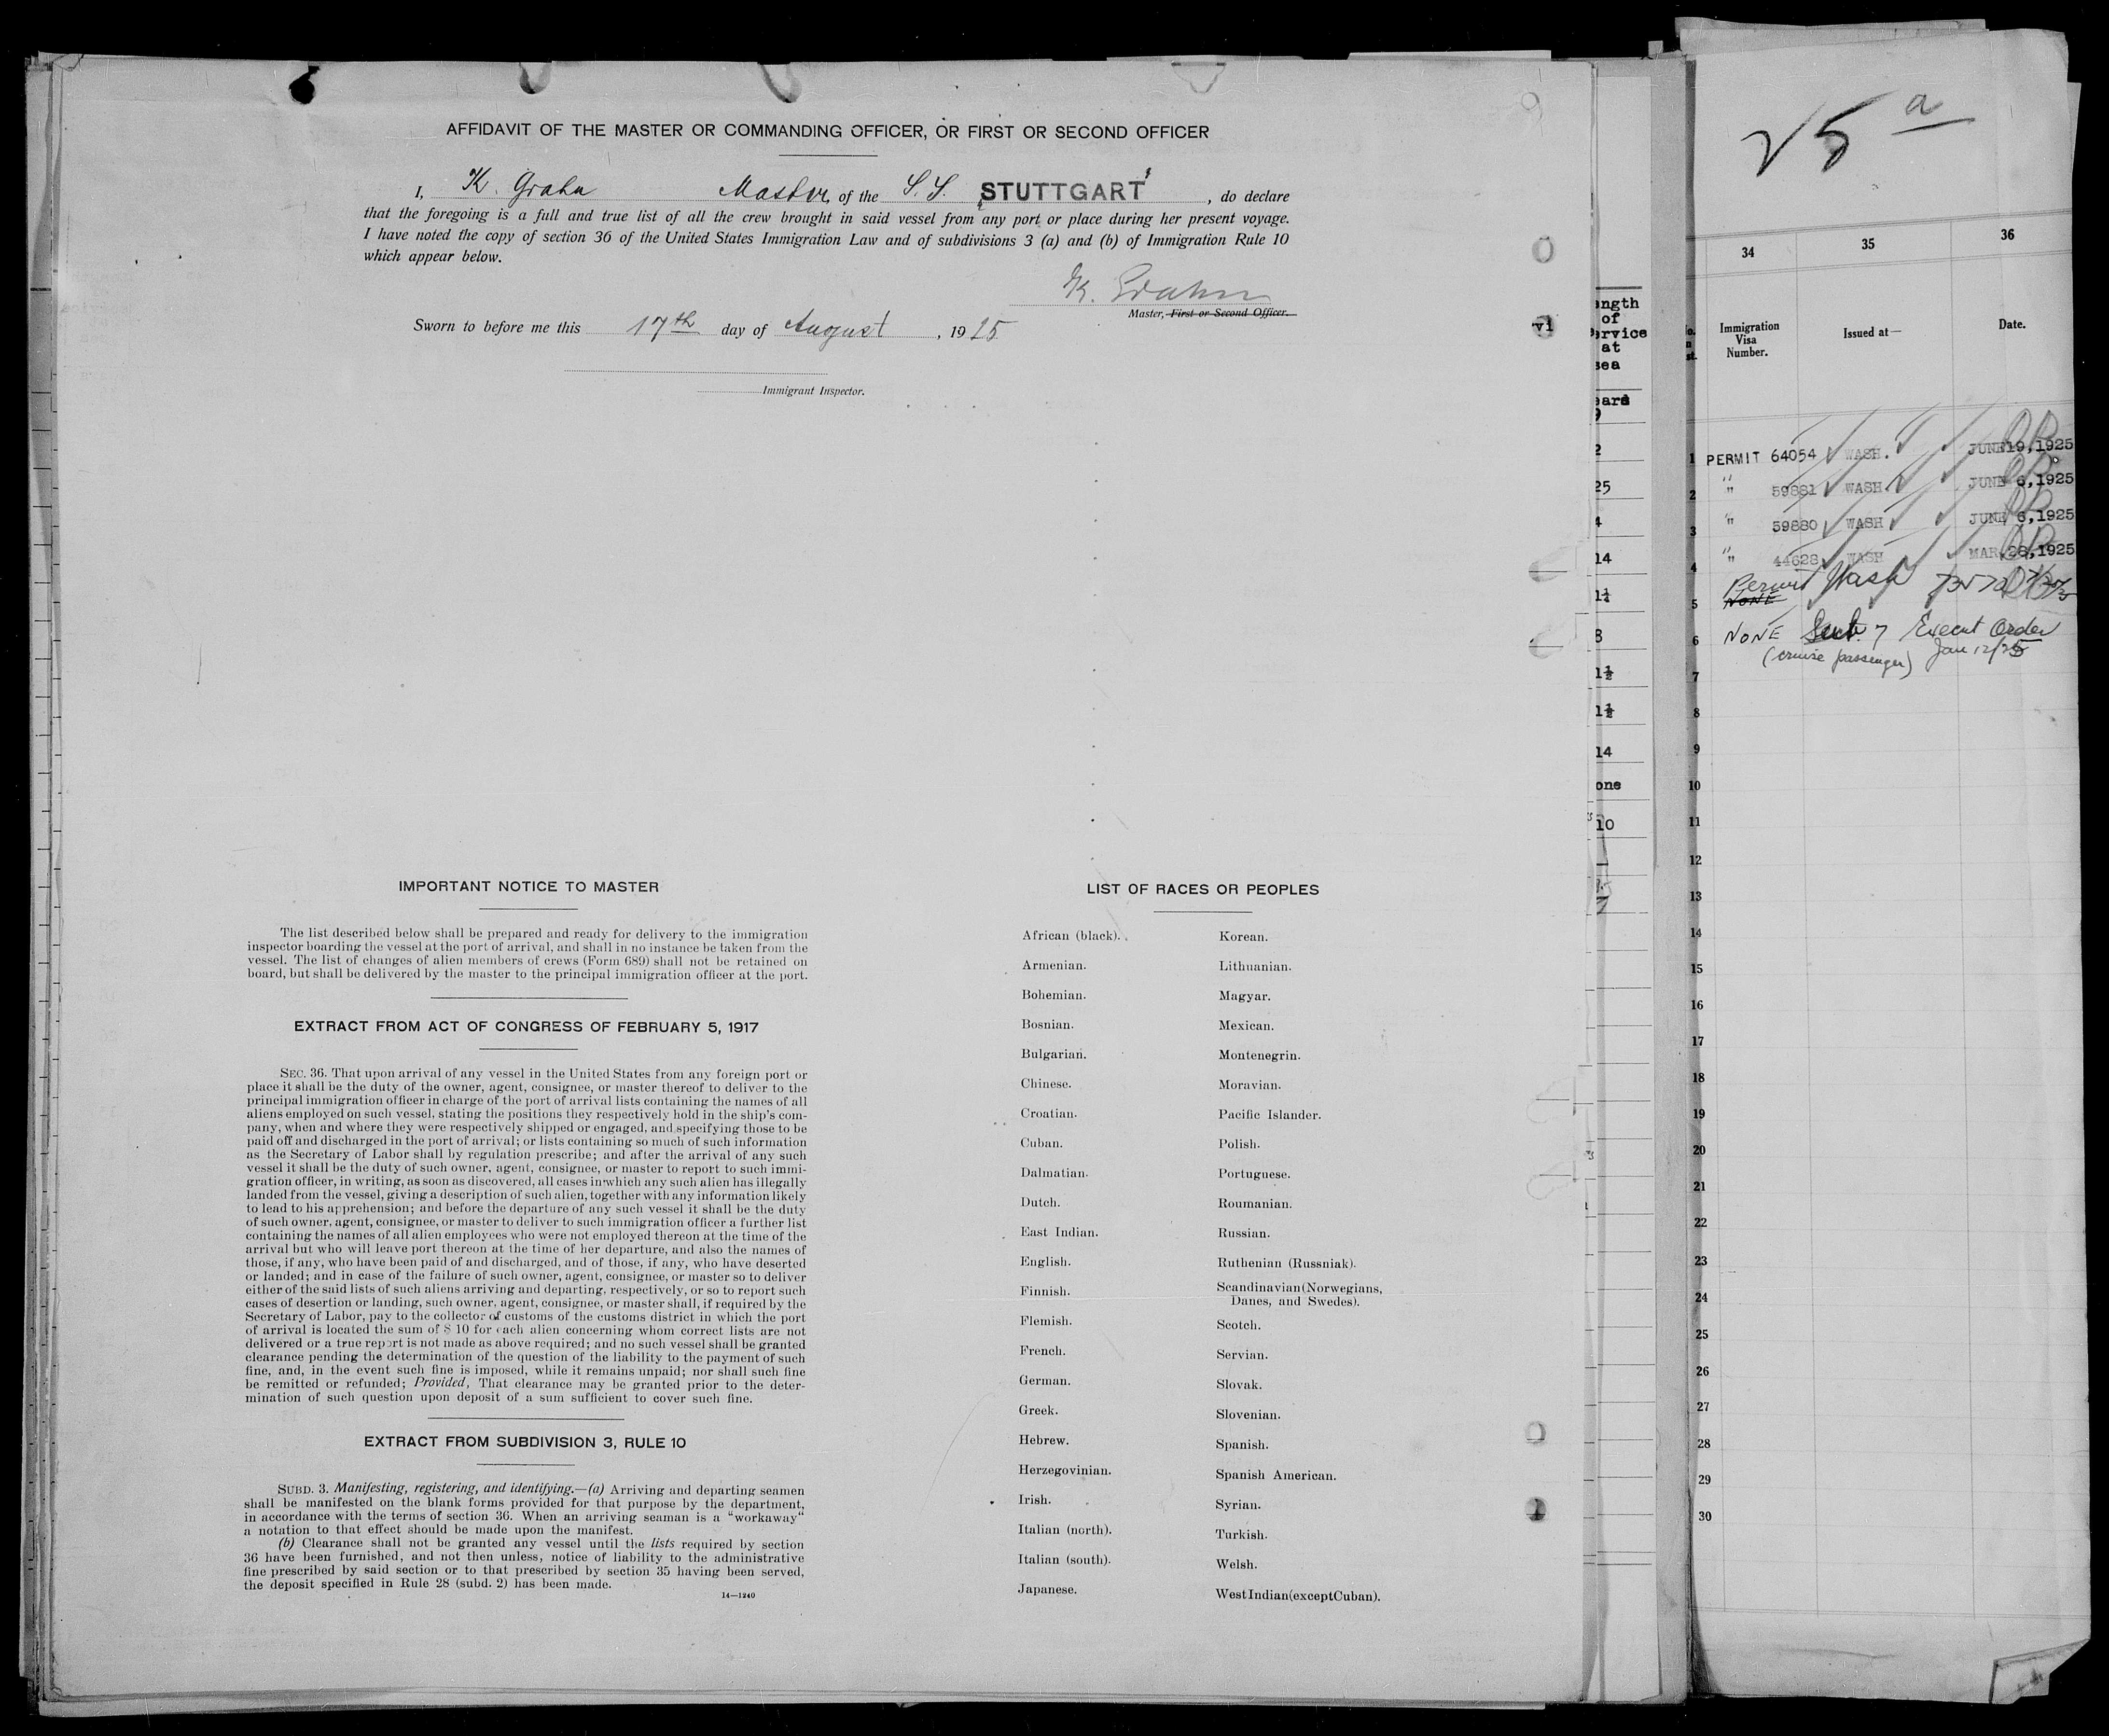 AFFIDAVIT OF THE MASTER OR COMMANDING OFFICER, OR FIRST OR SECOND OFFICER
I, K. Grahn Master, of the S.S. "STUTTGART", do declare
that the foregoing is a full and true list of all the crew brought in said vessel from any port or place during her present voyage.
I have noted the copy of section 36 of the United States Immigration Law and of subdivisions 3 (a) and (b) of Immigration Rule 10
which appear below.
K. Grahn
Master, First or Second Officer.
Sworn to before me this 17th day of August, 1925
Immigrant Inspector.
IMPORTANT NOTICE TO MASTER
The list described below shall be prepared and ready for delivery to the immigration
inspector boarding the vessel at the port of arrival, and shall in no instance be taken from the
vessel. The list of changes of alien members of crews (Form 689) shall not be retained on
board, but shall be delivered by the master to the principal immigration officer at the port.
EXTRACT FROM ACT OF CONGRESS OF FEBRUARY 5, 1917
SEC. 36. That upon arrival of any vessel in the United States from any foreign port or
place it shall be the duty of the owner, agent, consignee, or master thereof to deliver to the
principal immigration officer in charge of the port of arrival lists containing the names of all
aliens employed on such vessel, stating the positions they respectively hold in the ship's com-
pany, when and where they were respectively shipped or engaged, and specifying those to be
paid off and discharged in the port of arrival; or lists containing so much of such information
as the Secretary of Labor shall by regulation prescribe; and after the arrival of any such
vessel it shall be the duty of such owner, agent, consignee, or master to report to such immi-
gration officer, in writing, as soon as discovered, all cases in which any such alien has illegally
landed from the vessel, giving a description of such alien, together with any information likely
to lead to his apprehension; and before the departure of any such vessel it shall be the duty
of such owner, agent, consignee, or master to deliver to such immigration officer a further list
containing the names of all alien employees who were not employed thereon at the time of the
arrival but who will leave port thereon at the time of her departure, and also the names of
those, if any, who have been paid of and discharged, and of those, if any, who have deserted
or landed; and in case of the failure of such owner, agent, consignee, or master so to deliver
either of the said lists of such aliens arriving and departing, respectively, or so to report such
cases of desertion or landing, such owner, agent, consignee, or master shall, if required by the
Secretary of Labor, pay to the collector of customs of the customs district in which the port
of arrival is located the sum of $ 10 for each alien concerning whom correct lists are not
delivered or a true report is not made as above required; and no such vessel shall be granted
clearance pending the determination of the question of the liability to the payment of such
fine, and, in the event such fine is imposed, while it remains unpaid; nor shall such fine
be remitted or refunded; Provided, That clearance may be granted prior to the deter-
mination of such question upon deposit of a sum sufficient to cover such fine.
EXTRACT FROM SUBDIVISION 3, RULE 10
SUBD. 3. Manifesting, registering, and identifying.—(a) Arriving and departing seamen
shall be manifested on the blank forms provided for that purpose by the department,
in accordance with the terms of section 36. When an arriving seaman is a "workaway"
a notation to that effect should be made upon the manifest.
(b) Clearance shall not be granted any vessel until the lists required by section
36 have been furnished, and not then unless, notice of liability to the administrative
fine prescribed by said section or to that prescribed by section 35 having been served,
the deposit specified in Rule 28 (subd. 2) has been made.
14—1240
LIST OF RACES OR PEOPLES
African (black).
Armenian.
Bohemian.
Bosnian.
Bulgarian.
Chinese.
Croatian.
Cuban.
Dalmatian.
Dutch.
East Indian.
English.
Finnish.
Flemish.
French.
German.
Greek.
Hebrew.
Herzegovinian.
Irish.
Italian (north).
Italian (south).
Japanese.
Korean.
Lithuanian.
Magyar.
Mexican.
Montenegrin.
Moravian.
Pacific Islander.
Polish.
Portuguese.
Roumanian.
Russian.
Ruthenian (Russniak).
Scandinavian (Norwegians,
Danes, and Swedes).
Scotch.
Servian.
Slovak.
Slovenian.
Spanish.
Spanish American.
Syrian.
Turkish.
Welsh.
West Indian (except Cuban).
of
at
2
25
4
14
1¼
8
1½
1½
14
10
25 a
34 35 36
Immigration
Visa
Number.
Issued at—
Date.
1 PERMIT 64054 WASH. JUNE 19, 1925
2 " 59881 WASH JUNE 6, 1925
3 " 59880 WASH JUNE 6, 1925
4 " 44628 WASH MAR. 28, 1925
5 Permit Wash
NONE
6 NONE Sub. 7 Execut Order
(cruise passenger) Jan 12/25
7
8
9
10
11
12
13
14
15
16
17
18
19
20
21
22
23
24
25
26
27
28
29
30